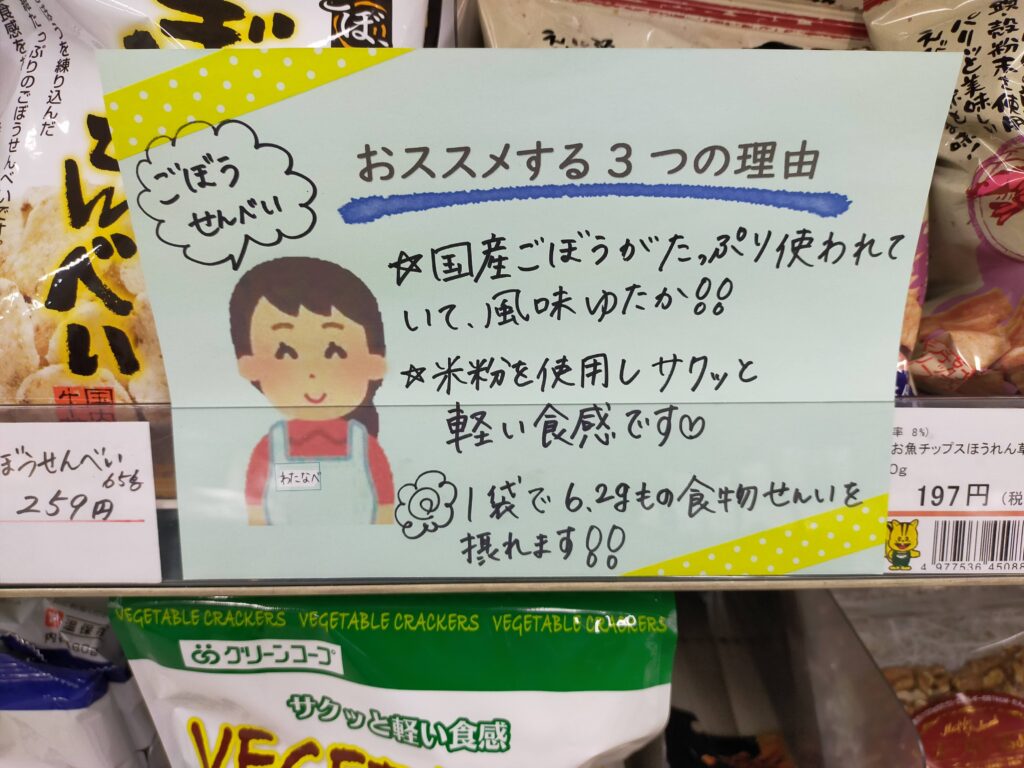 ごぼう
せんべい
おススメする3つの理由
☆国産ごぼうがたっぷり使われて
いて、風味ゆたか!!
☆米粉を使用しサクッと
軽い食感です♡
1袋で6.2gもの食物せんいを
摂れます!!
わたなべ
を練り込んだ
っぷりのごぼうせんべいです。
ごぼ
せんべい
ぼうせんべい
65g
259円
パリッと美味しい
率 8%)
お魚チップスほうれん草
0g
197円(税
4 977536 45088
VEGETABLE CRACKERS VEGETABLE CRACKERS VEGETABLE CRACKERS
グリーンコープ
サクッと軽い食感
VEGET